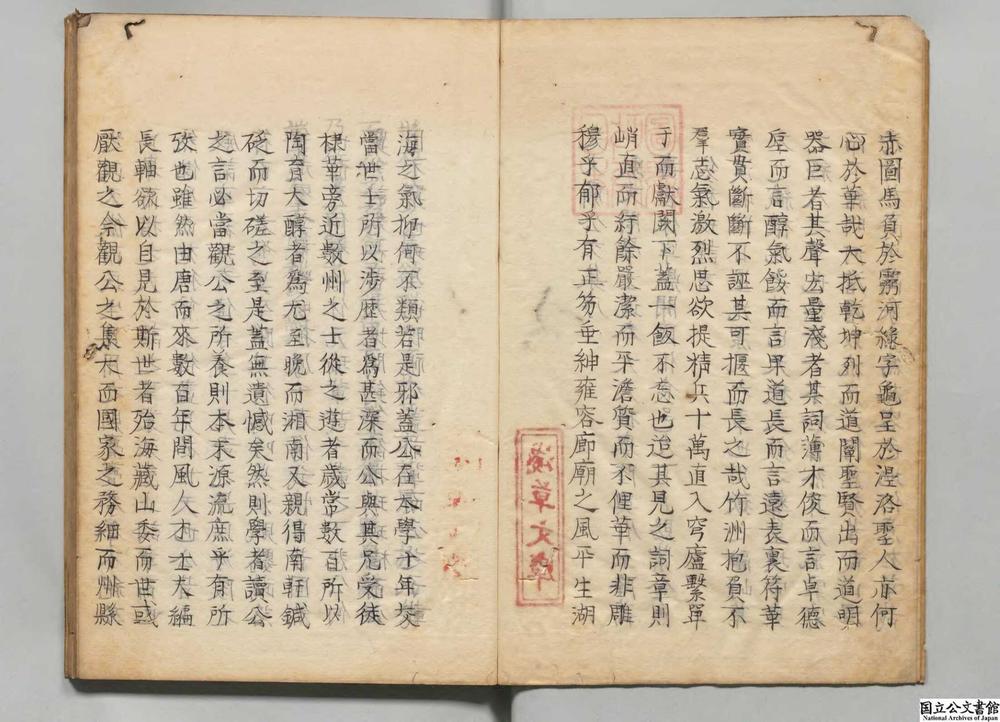 赤圖馬負於榮河緑字龜呈於溫洛聖人亦何
心於華哉大抵乾坤列而道闡聖賢出而道明
器巨者其聲宏量淺者其詞薄才俊而言卓德
厚而言醇氣餒而言畀道長而言遠表裏符華
實貴斷斷不誣其可揠而長之哉竹洲抱負不
羣志氣激烈思欲提精兵十萬直入穹廬繫單
于而獻闕下蓋一飯不忘也迨其見之詞章則
峭直而紆餘嚴潔而平澹質而不俚華而非雕
穆乎郁乎有正笏垂紳雍容廊廟之風平生湖
海之氣抑何不類若是邪蓋公在本學十年爻
當世士所以涉歴者爲甚深而公與其兄受徒
棣華旁近數州之士從之遊者歲常數百所以
陶育大醇者爲尤至晚而湘南又親得南軒鍼
砭而切磋之至是蓋無遺憾矣然則學者讀公
之言必當觀公之所養則本末源流庶乎有所
攷也雖然由唐而來數百年間風人才士大編
長軸欲以自見於斯世者殆海藏山委而世或
厭觀之今觀公之集大而國家之務細而州縣
淺草文庫
国立公文書館
National Archives of Japan